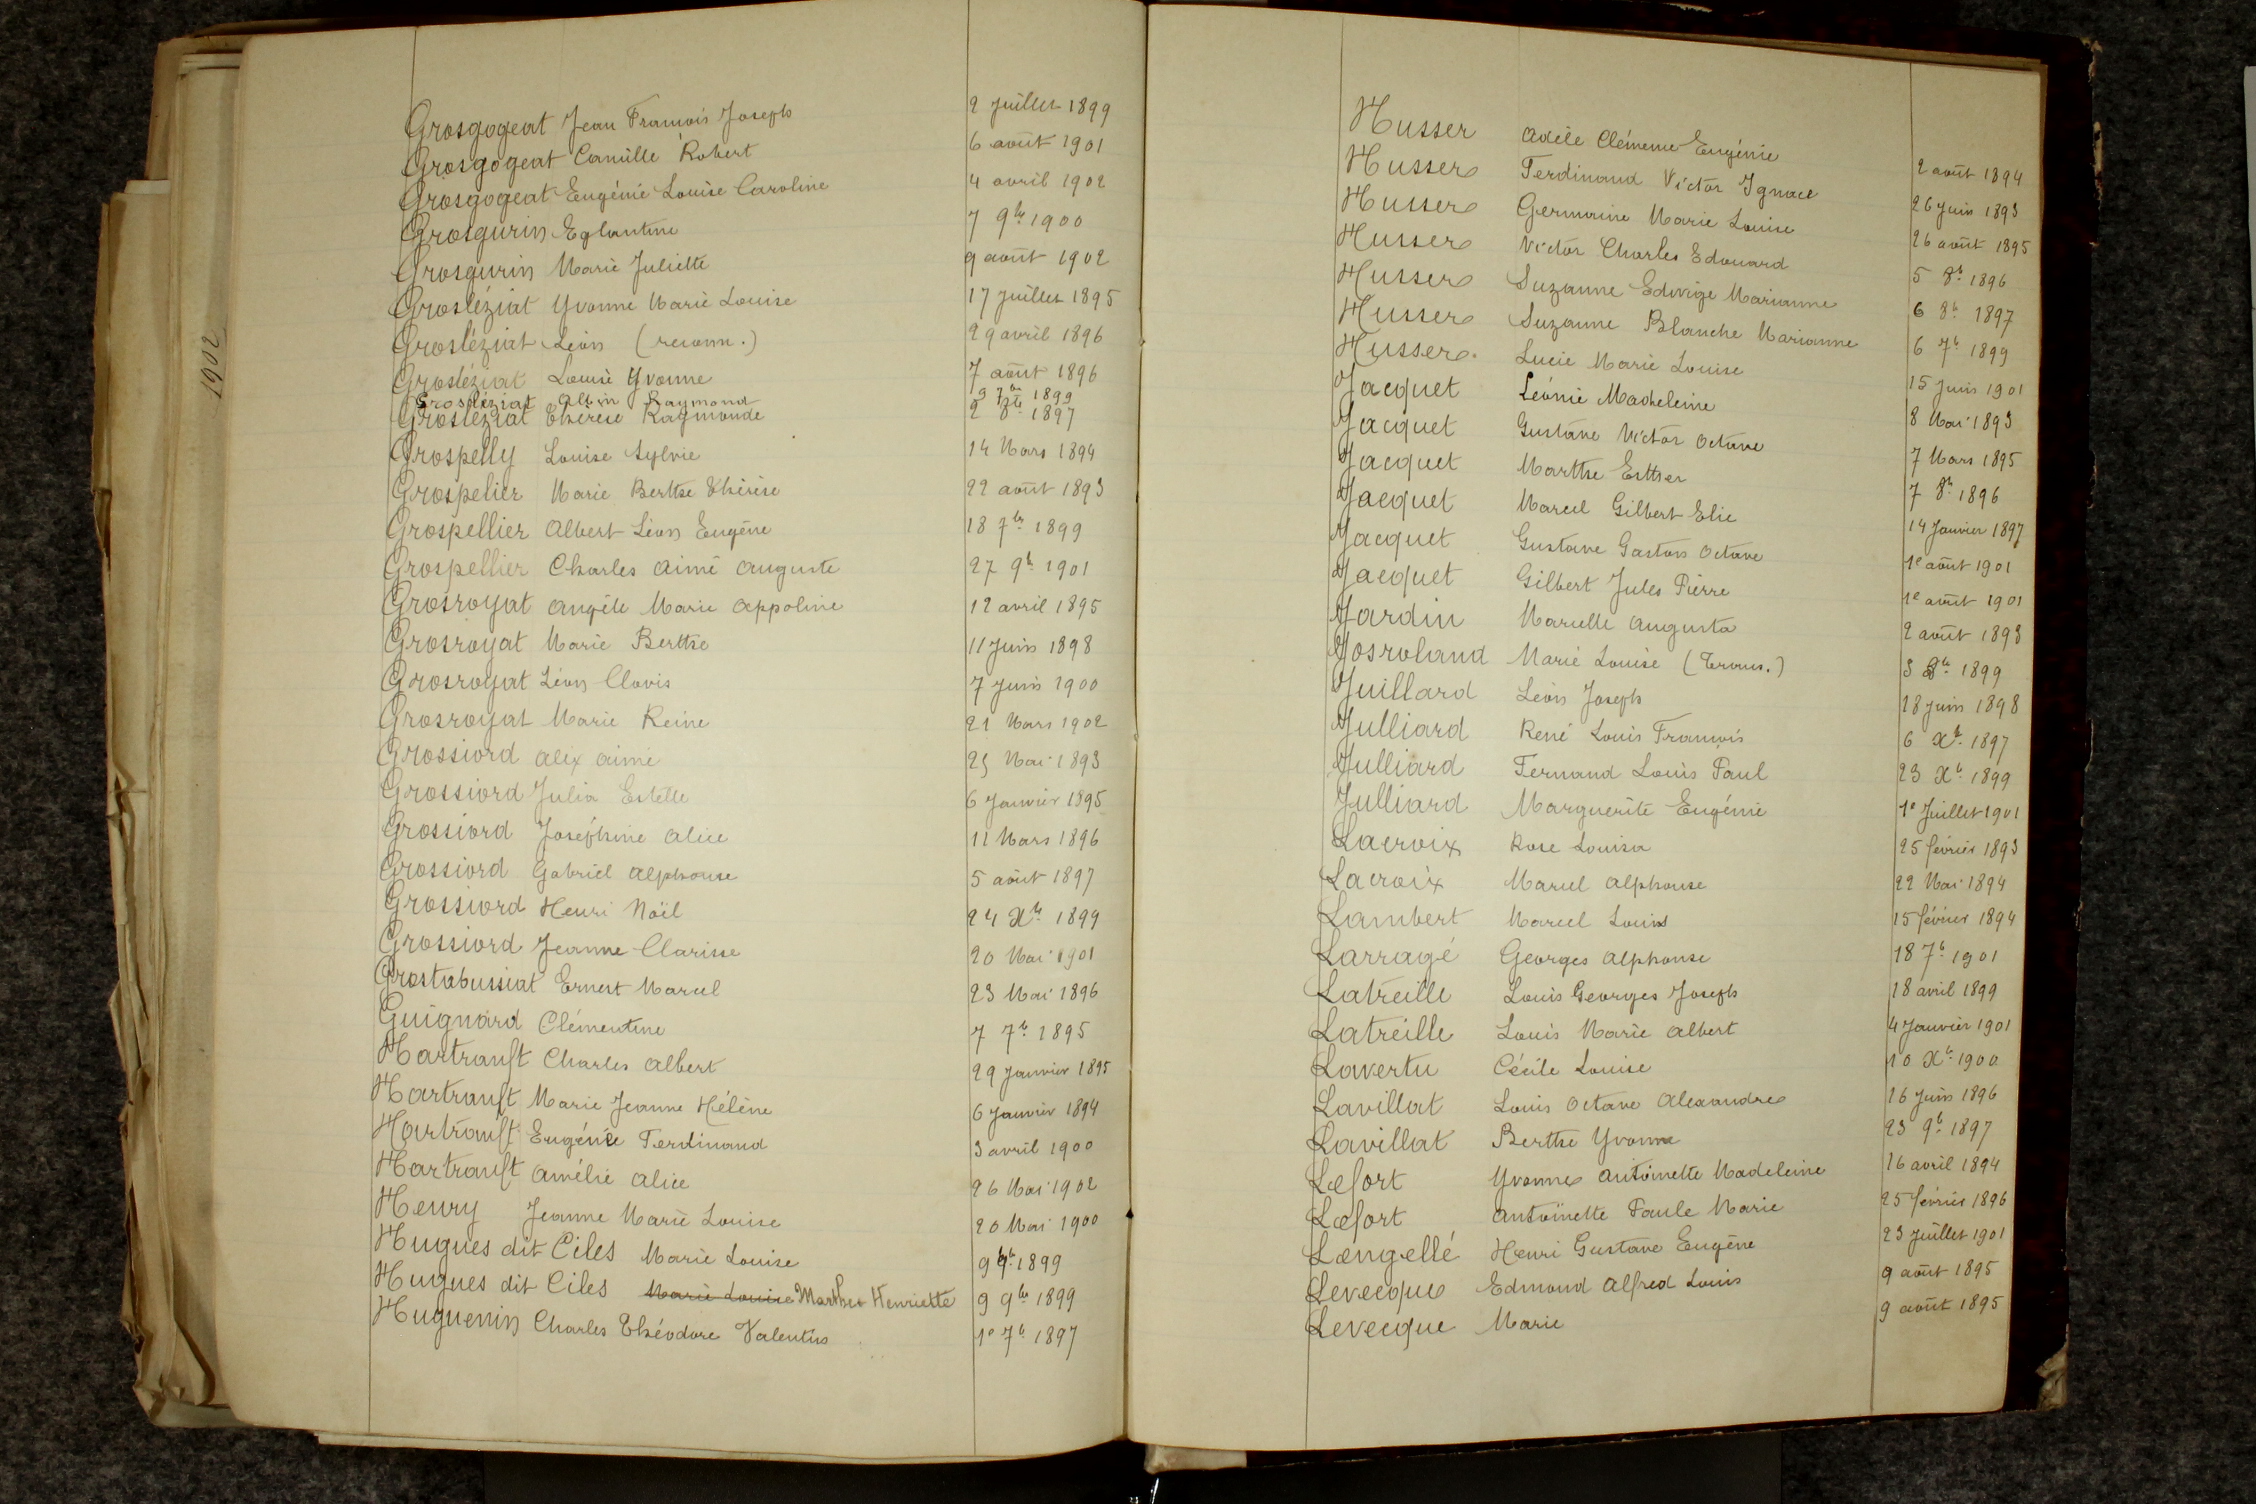 1902
Grosgogeat Jean François Joseph 2 Juillet 1899
Grosgogeat Camille Robert 6 août 1901
Grosgogeat Eugénie Louise Caroline 4 avril 1902
Grosgurin Eglantine 7 9bre 1900
Grosgurin Marie Juliette 9 août 1902
Grosléziat Yvonne Marie Louise 17 Juillet 1895
Grosléziat Léon (reconn.) 29 avril 1896
Grosléziat Louise Yvonne 7 août 1896
Grosléziat Albin Raymond 1899
Grosléziat Thérèse Raymonde 2 8bre 1897
Grospelly Louise Sylvie 14 Mars 1894
Grospelier Marie Berthe Thérèse 22 août 1893
Grospellier Albert Léon Eugène 18 7bre 1899
Grospellier Charles Aimé Auguste 27 9b. 1901
Grosroyat Angèle Marie Appoline 12 avril 1895
Grosroyat Marie Berthe 11 Juin 1898
Grosroyat Léon Clovis 7 Juin 1900
Grosroyat Marie Reine 21 Mars 1902
Grossiord Alix Aimé 25 Mai 1893
Grossiord Julia Estelle 6 Janvier 1895
Grossiord Joséphine Alice 11 Mars 1896
Grossiord Gabriel Alphonse 5 août 1897
Grossiord Henri Noël 24 Xbre 1899
Grossiord Jeanne Clarisse 20 Mai 1901
Grostabussiat Ernest Marcel 23 Mai 1896
Guignard Clémentine 7 7b. 1895
Hartranft Charles Albert 29 Janvier 1895
Hartranft Marie Jeanne Hélène 6 Janvier 1894
Hartranft Eugénie Ferdinand 3 avril 1900
Hartranft Amélie Alice 26 Mai 1902
Henry Jeanne Marie Louise 20 Mai 1900
Hugues dit Ciles Marie Louise 9 9b. 1899
Hugues dit Ciles Marie Louise Marthe Henriette 9 9bre 1899
Huguenin Charles Théodore Valentin 1e 7b. 1897
Husser Adèle Clémence Eugénie 2 août 1894
Husser Ferdinand Victor Ignace 26 Juin 1893
Husser Germaine Marie Louise 26 août 1895
Husser Victor Charles Edouard 5 8b. 1896
Husser Suzanne Edwige Marianne 6 8b. 1897
Husser Suzanne Blanche Marianne 6 7b. 1899
Husser Lucie Marie Louise 15 Juin 1901
Jacquet Léonie Madeleine 8 Mai 1893
Jacquet Gustave Victor Octave 7 Mars 1895
Jacquet Marthe Esther 7 8b. 1896
Jacquet Marcel Gilbert Elie 14 Janvier 1897
Jacquet Gustave Gaston Octave 1e août 1901
Jacquet Gilbert Jules Pierre 1e août 1901
Jardin Marcelle Augusta 2 août 1893
Josroland Marie Louise (Trans.) 3 8bre 1899
Juillard Léon Joseph 18 Juin 1898
Julliard René Louis François 6 Xb. 1897
Julliard Fernand Louis Paul 23 Xb. 1899
Julliard Marguerite Eugénie 1e Juillet 1901
Lacroix Rose Louisa 25 février 1893
Lacroix Marcel Alphonse 22 Mai 1894
Lambert Marcel Louis 15 février 1894
Larragé Georges Alphonse 18 7b. 1901
Latreille Louis Georges Joseph 18 avril 1899
Latreille Louis Marie Albert 4 Janvier 1901
Lavertu Cécile Louise 10 Xb. 1900
Lavillat Louis Octave Alexandre 16 Juin 1896
Lavillat Berthe Yvonne 23 9b. 1897
Lefort Yvonne Antoinette Madeleine 16 avril 1894
Lefort Antoinette Paule Marie 25 février 1896
Lengellé Henri Gustave Eugène 23 Juillet 1901
Levecque Edmond Alfred Louis 9 août 1895
Levecque Marie 9 août 1895